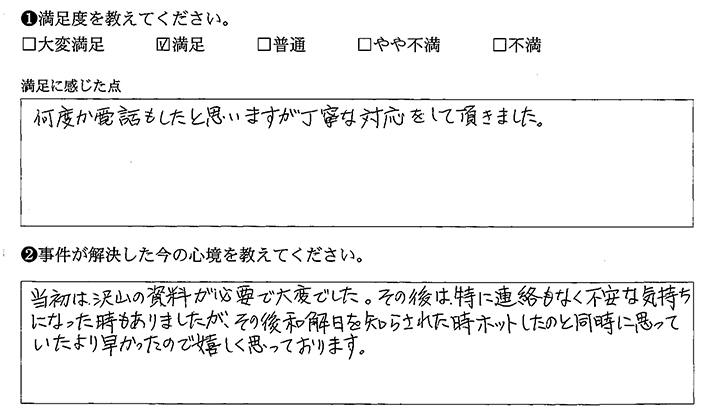 ❶満足度を教えてください。
☐大変満足 ☑満足 ☐普通 ☐やや不満 ☐不満
満足に感じた点
何度か電話もしたと思いますが丁寧な対応をして頂きました。
❷事件が解決した今の心境を教えてください。
当初は、沢山の資料が必要で大変でした。その後は、特に連絡もなく不安な気持ち
になった時もありましたが、その後和解日を知らされた時ホットしたのと同時に思って
いたより早かったので嬉しく思っております。